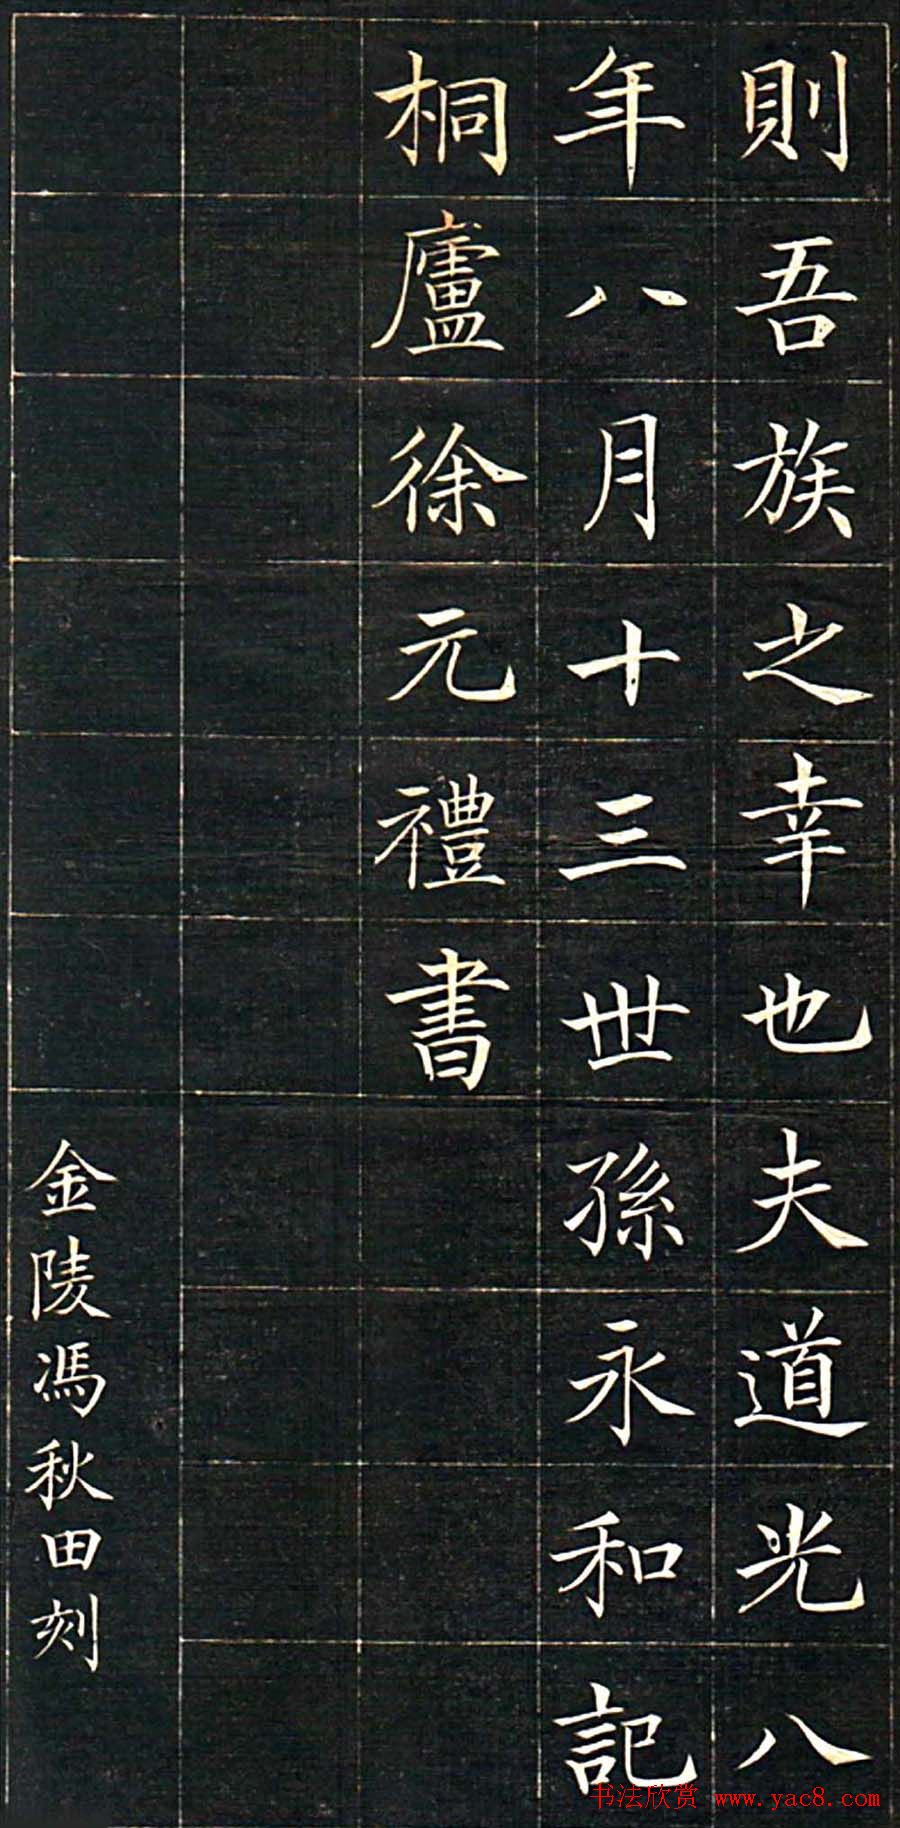 則吾族之幸也夫道光八
年八月十三世孫永和記
桐廬徐元禮書
金陵馮秋田刻
书法欣赏 www.yac8.com